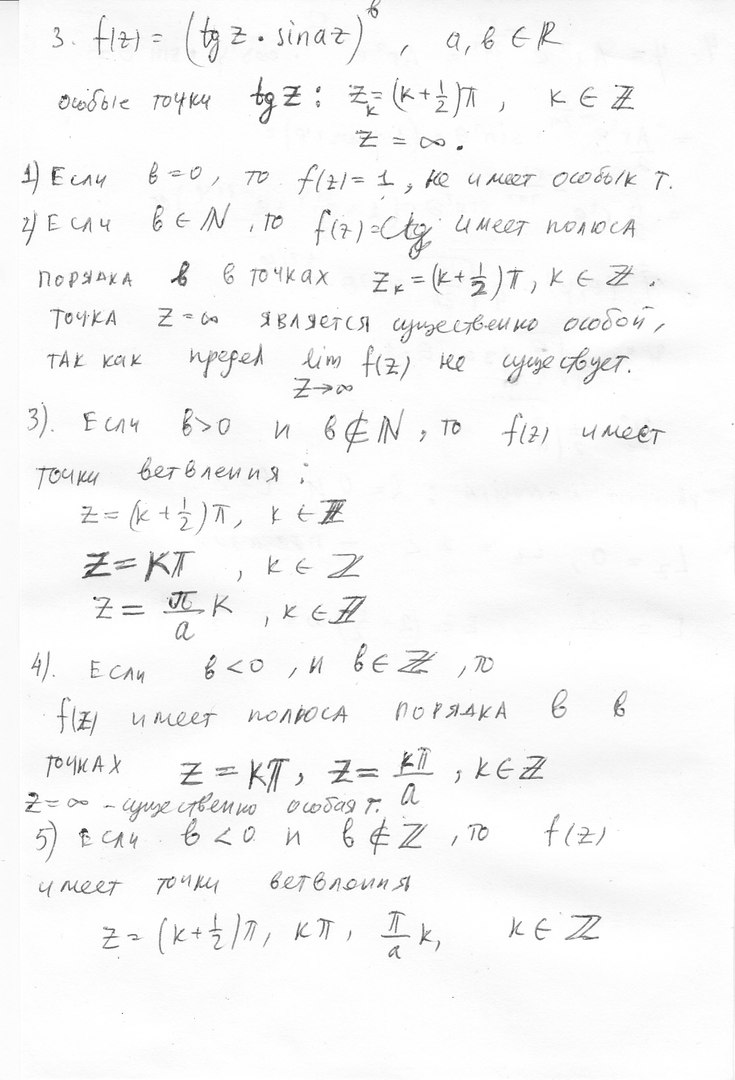 3. f(z) = (tg z · sin az)^в, a, в ∈ ℝ
особые точки tg z : z_k = (k + 1/2)π, k ∈ ℤ
z = ∞.
1) Если в = 0, то f(z) = 1, не имеет особых т.
2) Если в ∈ ℕ, то f(z) имеет полюса
порядка в в точках z_k = (k + 1/2)π, k ∈ ℤ.
точка z = ∞ является существенно особой,
так как предел lim f(z) не существует.
z→∞
3). Если в > 0 и в ∉ ℕ, то f(z) имеет
точки ветвления :
z = (k + 1/2)π, k ∈ ℤ
z = kπ, k ∈ ℤ
z = π/a k, k ∈ ℤ
4). Если в < 0, и в ∈ ℤ, то
f(z) имеет полюса порядка в в
точках z = kπ, z = kπ/a, k ∈ ℤ
z = ∞ – существенно особая т.
5) Если в < 0 и в ∉ ℤ, то f(z)
имеет точки ветвления
z = (k + 1/2)π, kπ, π/a k, k ∈ ℤ